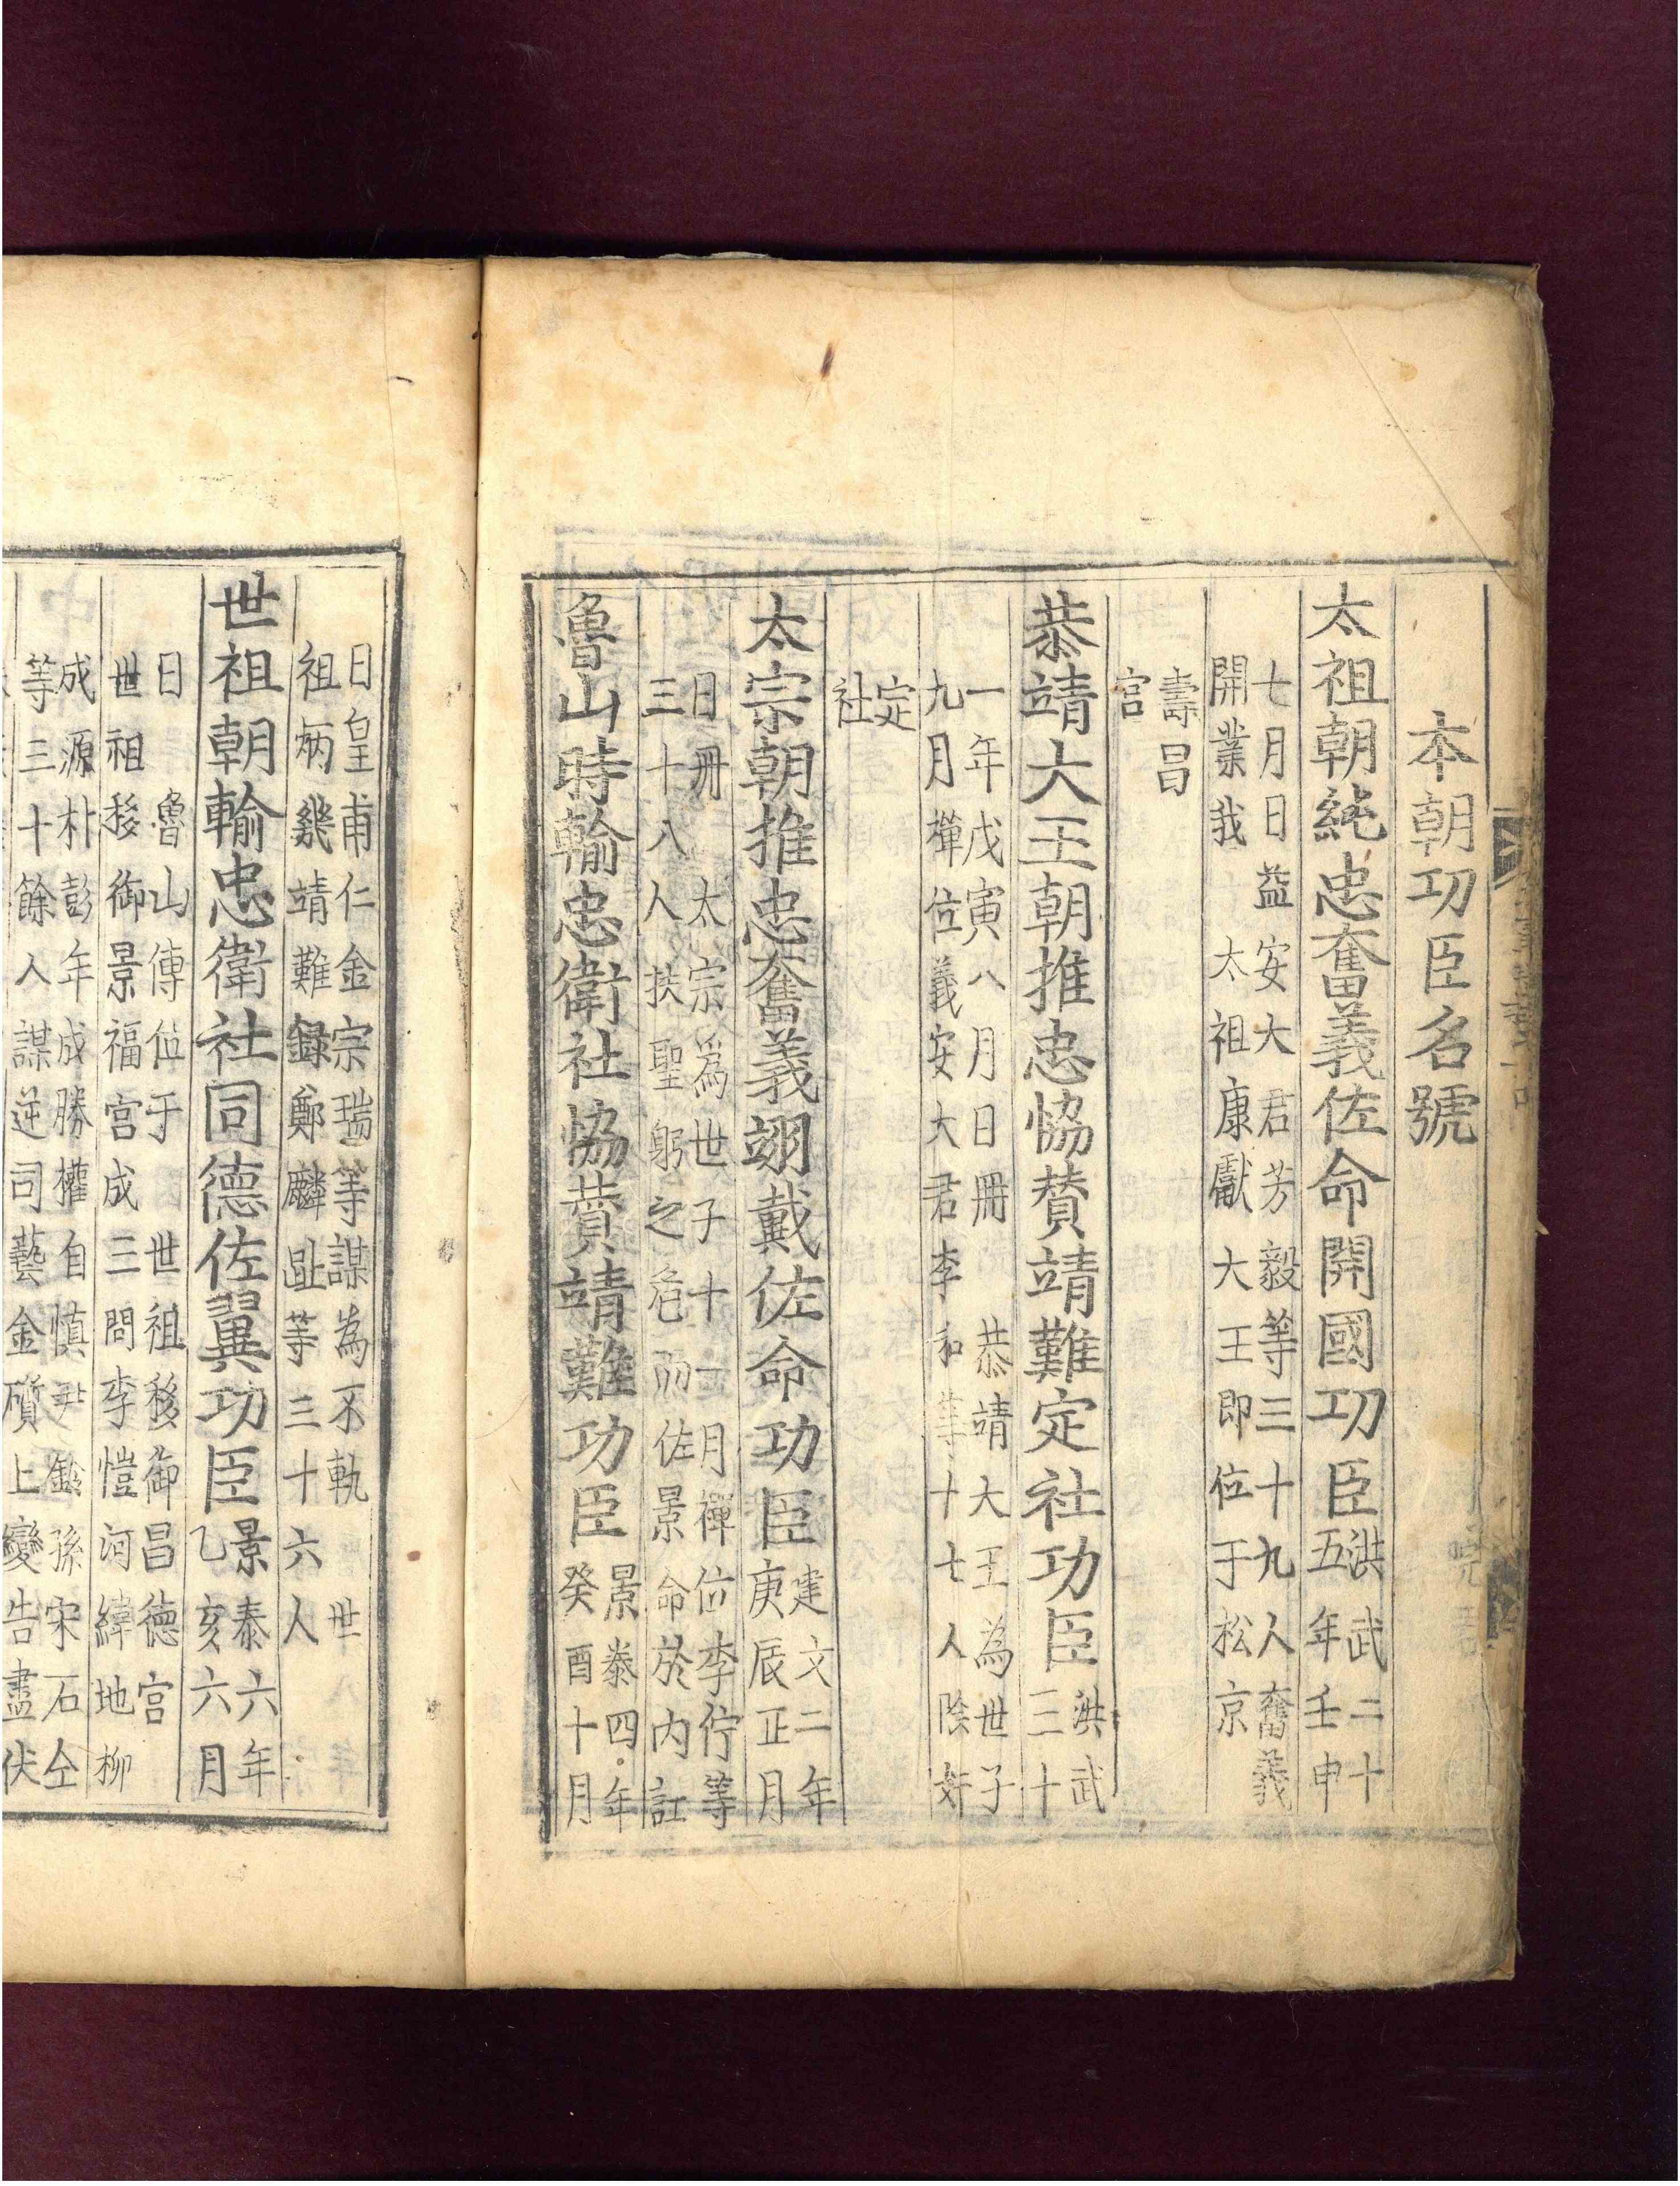 本朝功臣名號
太祖朝純忠奮義佐命開國功臣洪武二十
五年壬申
七月日益安大君芳毅等三十九人奮義
開業我太祖康獻大王即位于松京
壽昌
宮
恭靖大王朝推忠恊賛靖難定社功臣洪武
三十
一年戊寅八月日冊恭靖大王為世子
九月禪位義安大君李和等十七人除奸
定
社
太宗朝推忠奮義翊戴佐命功臣建文二年
庚辰正月
日冊太宗爲世子十一月禪位李佇等
三十八人扶聖躬之危而佐景命於內訌
魯山時輸忠衛社恊賛靖難功臣景泰四年
癸酉十月
日皇甫仁金宗瑞等謀為不軌世
祖炳幾靖難録鄭麟趾等三十六人
世祖朝輸忠衛社同德佐翼功臣景泰六年
乙亥六月
日魯山傳位于世祖移御昌德宮
世祖移御景福宮成三問李愷河緯地柳
成源朴彭年成勝權自慎尹鈴孫宋石仝
等三十餘人謀逆司藝金礩上變告盡伏